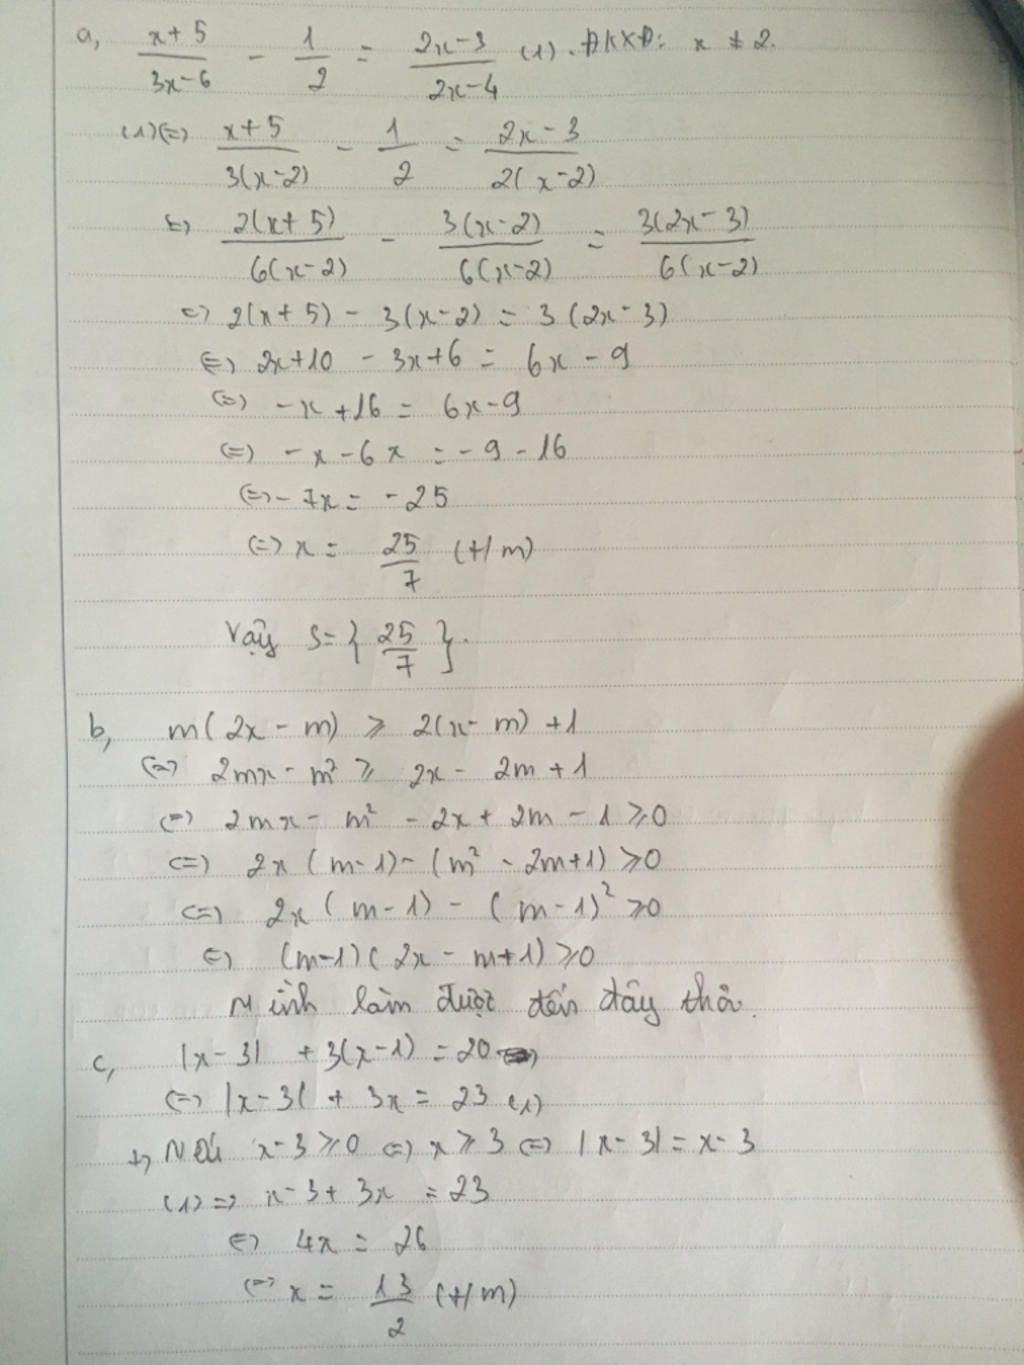 a, \frac{x+5}{3x-6} - \frac{1}{2} = \frac{2x-3}{2x-4} (1). ĐKXĐ: x ≠ 2.
(1) (=) \frac{x+5}{3(x-2)} - \frac{1}{2} = \frac{2x-3}{2(x-2)}
(=) \frac{2(x+5)}{6(x-2)} - \frac{3(x-2)}{6(x-2)} = \frac{3(2x-3)}{6(x-2)}
(=) 2(x+5) - 3(x-2) = 3(2x-3)
(=) 2x+10 - 3x+6 = 6x - 9
(=) -x+16 = 6x-9
(=) -x-6x = -9-16
(=) -7x = -25
(=) x = \frac{25}{7} (t/m)
Vậy S={\frac{25}{7}}.
b, m(2x-m) ≥ 2(x-m)+1
(=) 2mx - m² ≥ 2x - 2m + 1
(=) 2mx - m² - 2x + 2m - 1 ≥ 0
(=) 2x(m-1) - (m² - 2m+1) ≥ 0
(=) 2x(m-1) - (m-1)² ≥ 0
(=) (m-1)(2x-m+1) ≥ 0
Mình làm được đến đây thôi.
c, |x-3| + 3(x-1) = 20
(=) |x-3| + 3x = 23 (1)
+, Nếu x-3 ≥ 0 (=) x ≥ 3 (=) |x-3| = x-3
(1) => x-3+3x = 23
(=) 4x = 26
(=) x = \frac{13}{2} (t/m)